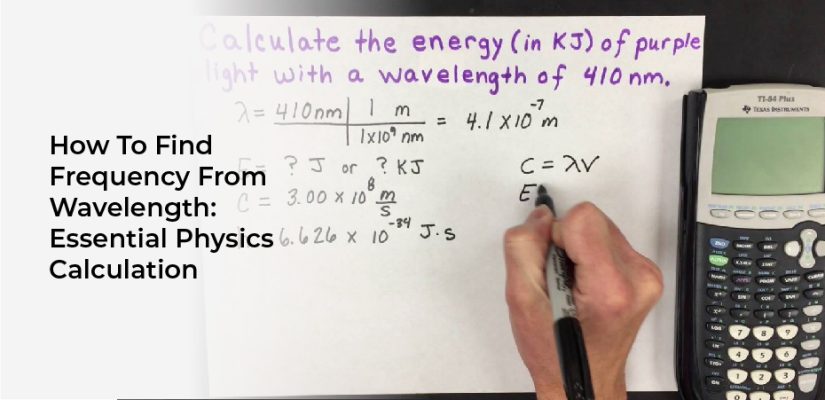 Calculate the energy (in KJ) of purple
light with a wavelength of 410 nm.
λ = 410nm | 1 m
1x10⁹ nm = 4.1 x 10⁻⁷ m
E = ? J or ? KJ
C = λν
C = 3.00 x 10⁸ m/s
E
6.626 x 10⁻³⁴ J·s
How To Find
Frequency From
Wavelength:
Essential Physics
Calculation
TI-84 Plus
TEXAS INSTRUMENTS
7 8 9
4 5 6
1 2 3